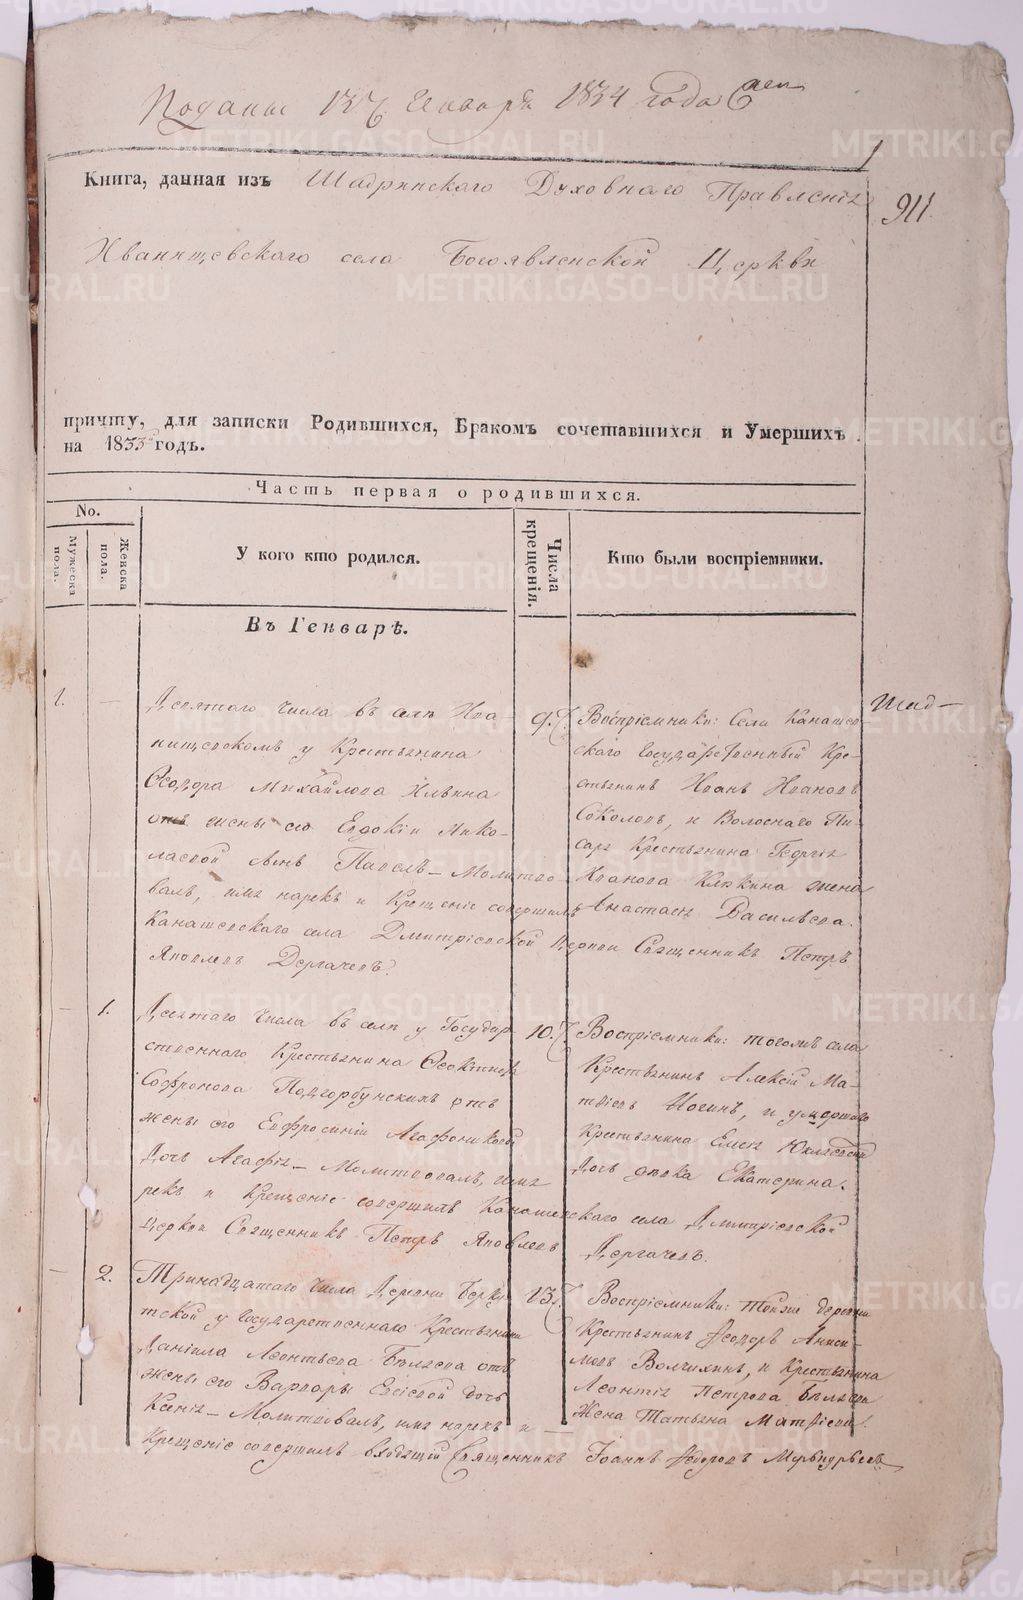 Поданы 13 Генваря 1834 года
Книга, данная изъ Шадринскаго Духовнаго Правленія
911.
Иванищевскаго села Богоявленской Церкви
причту, для записки Родившихся, Бракомъ сочетавшихся и Умершихъ
на 1833 годъ.
Часть первая о родившихся.
No.
Мужеска пола.
Женска пола.
У кого кто родился.
Числа крещенія.
Кто были воспріемники.
Въ Генварѣ.
1.
—
Девятаго числа въ селѣ Ива-
нищевскомъ у Крестьянина
Ѳеодора Михайлова Ильина
отъ жены его Евдокіи Нико-
лаевой сынъ Павелъ – Молитво-
валъ, имя нарекъ и Крещеніе совершилъ
Канашевскаго села Димитріевской Церкви Священникъ Петръ
Яковлевъ Дергачевъ.
9.
Воспріемники: Села Канашев-
скаго Государственный Кре-
стьянинъ Иванъ Ивановъ
Соколовъ, и Волоснаго Пи-
саря Крестьянина Георгія
Иванова Клюкина жена
Анастасія Васильева.
Шад–
—
1.
Десятаго числа въ селѣ у Государ-
ственнаго Крестьянина
Софронова Подгорбунскихъ отъ
жены его Евфросиніи Агафониковой
Дочь Агафія – Молитвовалъ, имя
рекъ и Крещеніе совершилъ Канашевскаго села Димитріевской
Церкви Священникъ Петръ Яковлевъ Дергачевъ.
10.
Воспріемники: тогожъ села
Крестьянинъ Алексій Мат-
вѣевъ и умершаго
Крестьянина
Дочь дѣвка Екатерина.
—
2.
Тринадцатаго числа Деревни
у Государственнаго Крестьянина
Даніила Леонтьева Бѣляева отъ
жены его Варвары дочь
Ксенія – Молитвовалъ, имя нарекъ и
Крещеніе совершилъ входящій Священникъ Іоаннъ Ѳедоровъ
13.
Воспріемники: Тойже деревни
Крестьянинъ Ѳеодоръ Аниси-
мовъ Волчихинъ, и Крестьянина
Леонтія Петрова Бѣляева
Жена Татьяна Матвѣева.
METRIKI.GASO-URAL.RU